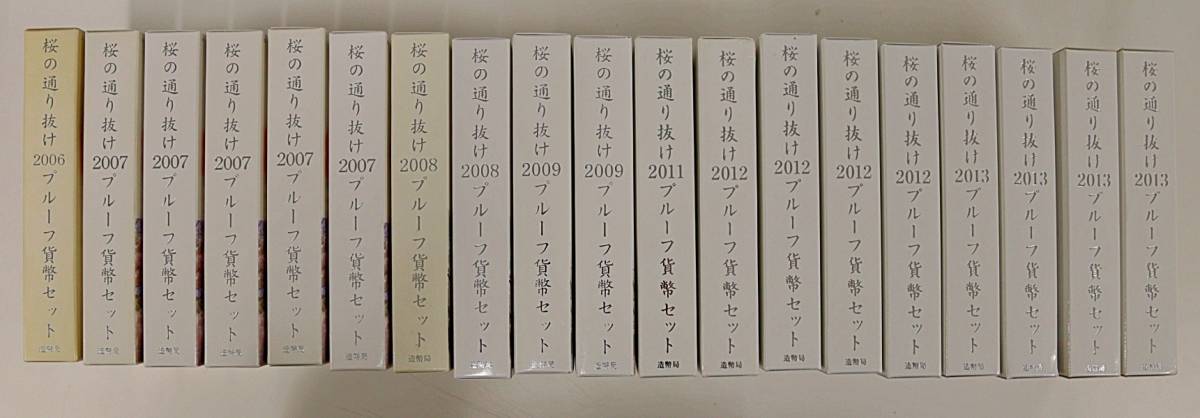 桜の通り抜け2006プルーフ貨幣セット
造幣局
桜の通り抜け2007プルーフ貨幣セット
造幣局
桜の通り抜け2007プルーフ貨幣セット
造幣局
桜の通り抜け2007プルーフ貨幣セット
造幣局
桜の通り抜け2007プルーフ貨幣セット
造幣局
桜の通り抜け2007プルーフ貨幣セット
造幣局
桜の通り抜け2008プルーフ貨幣セット
造幣局
桜の通り抜け2008プルーフ貨幣セット
造幣局
桜の通り抜け2009プルーフ貨幣セット
造幣局
桜の通り抜け2009プルーフ貨幣セット
造幣局
桜の通り抜け2011プルーフ貨幣セット
造幣局
桜の通り抜け2012プルーフ貨幣セット
造幣局
桜の通り抜け2012プルーフ貨幣セット
造幣局
桜の通り抜け2012プルーフ貨幣セット
造幣局
桜の通り抜け2012プルーフ貨幣セット
造幣局
桜の通り抜け2013プルーフ貨幣セット
造幣局
桜の通り抜け2013プルーフ貨幣セット
造幣局
桜の通り抜け2013プルーフ貨幣セット
造幣局
桜の通り抜け2013プルーフ貨幣セット
造幣局